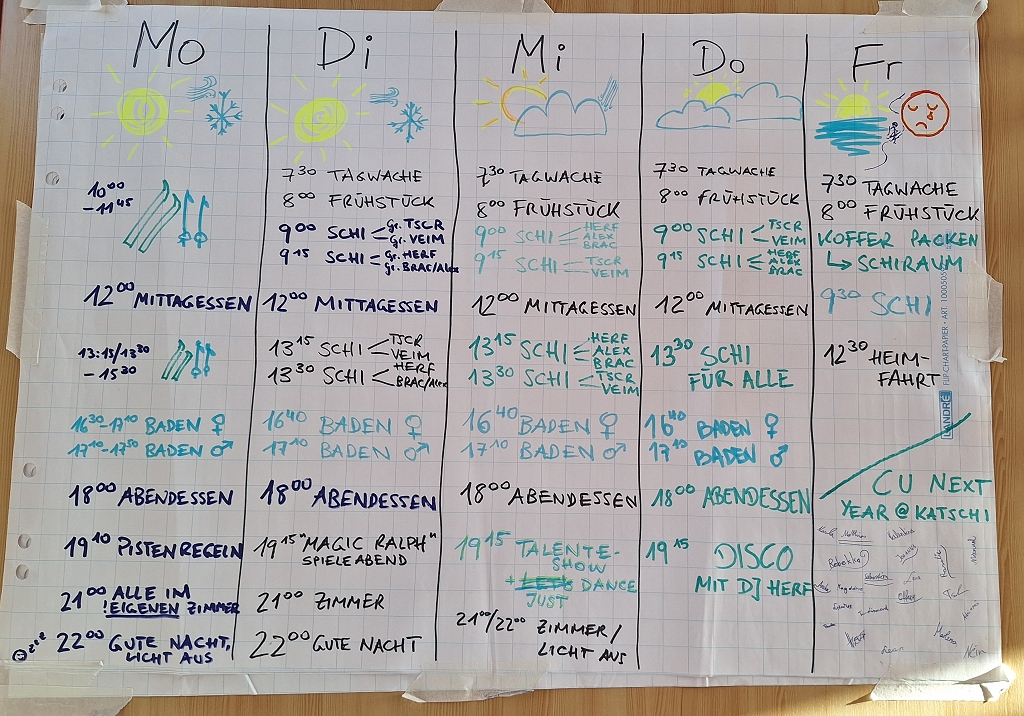 Mo
10⁰⁰
- 11⁴⁵
12⁰⁰ MITTAGESSEN
13:15/13³⁰
- 15³⁰
16³⁰-17¹⁰ BADEN ♀
17¹⁰-17⁵⁰ BADEN ♂
18⁰⁰ ABENDESSEN
19¹⁰ PISTENREGELN
21⁰⁰ ALLE IM
!EIGENEN ZIMMER
22⁰⁰ GUTE NACHT,
LICHT AUS
zzz
Di
7³⁰ TAGWACHE
8⁰⁰ FRÜHSTÜCK
9⁰⁰ SCHI gr. TSCR
gr. VEIM
9¹⁵ SCHI gr. HERF
gr. BRAC/Alex
12⁰⁰ MITTAGESSEN
13¹⁵ SCHI TSCR
VEIM
13³⁰ SCHI HERF
BRAC/Alex
16⁴⁰ BADEN ♀
17¹⁰ BADEN ♂
18⁰⁰ ABENDESSEN
19¹⁵ "MAGIC RALPH"
SPIELEABEND
21⁰⁰ ZIMMER
22⁰⁰ GUTE NACHT
Mi
7³⁰ TAGWACHE
8⁰⁰ FRÜHSTÜCK
9⁰⁰ SCHI HERF
ALEX
BRAC
9¹⁵ SCHI TSCR
VEIM
12⁰⁰ MITTAGESSEN
13¹⁵ SCHI HERF
ALEX
BRAC
13³⁰ SCHI TSCR
VEIM
16⁴⁰ BADEN ♀
17¹⁰ BADEN ♂
18⁰⁰ ABENDESSEN
19¹⁵ TALENTE-
SHOW
+ DANCE
JUST
21⁰⁰/22⁰⁰ ZIMMER/
LICHT AUS
Do
7³⁰ TAGWACHE
8⁰⁰ FRÜHSTÜCK
9⁰⁰ SCHI TSCR
VEIM
9¹⁵ SCHI HERF
ALEX
BRAC
12⁰⁰ MITTAGESSEN
13³⁰ SCHI
FÜR ALLE
16⁴⁰ BADEN ♀
17¹⁰ BADEN ♂
18⁰⁰ ABENDESSEN
19¹⁵ DISCO
MIT DJ HERF
Fr
7³⁰ TAGWACHE
8⁰⁰ FRÜHSTÜCK
KOFFER PACKEN
↳ SCHIRAUM
9³⁰ SCHI
12³⁰ HEIM-
FAHRT
CU NEXT
YEAR @ KATSCHI
Rebekka
LANDRÉ FLIPCHART-PAPIER • ART.